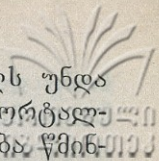 ლს უნდა
ორტალ-
ბა წმინ-